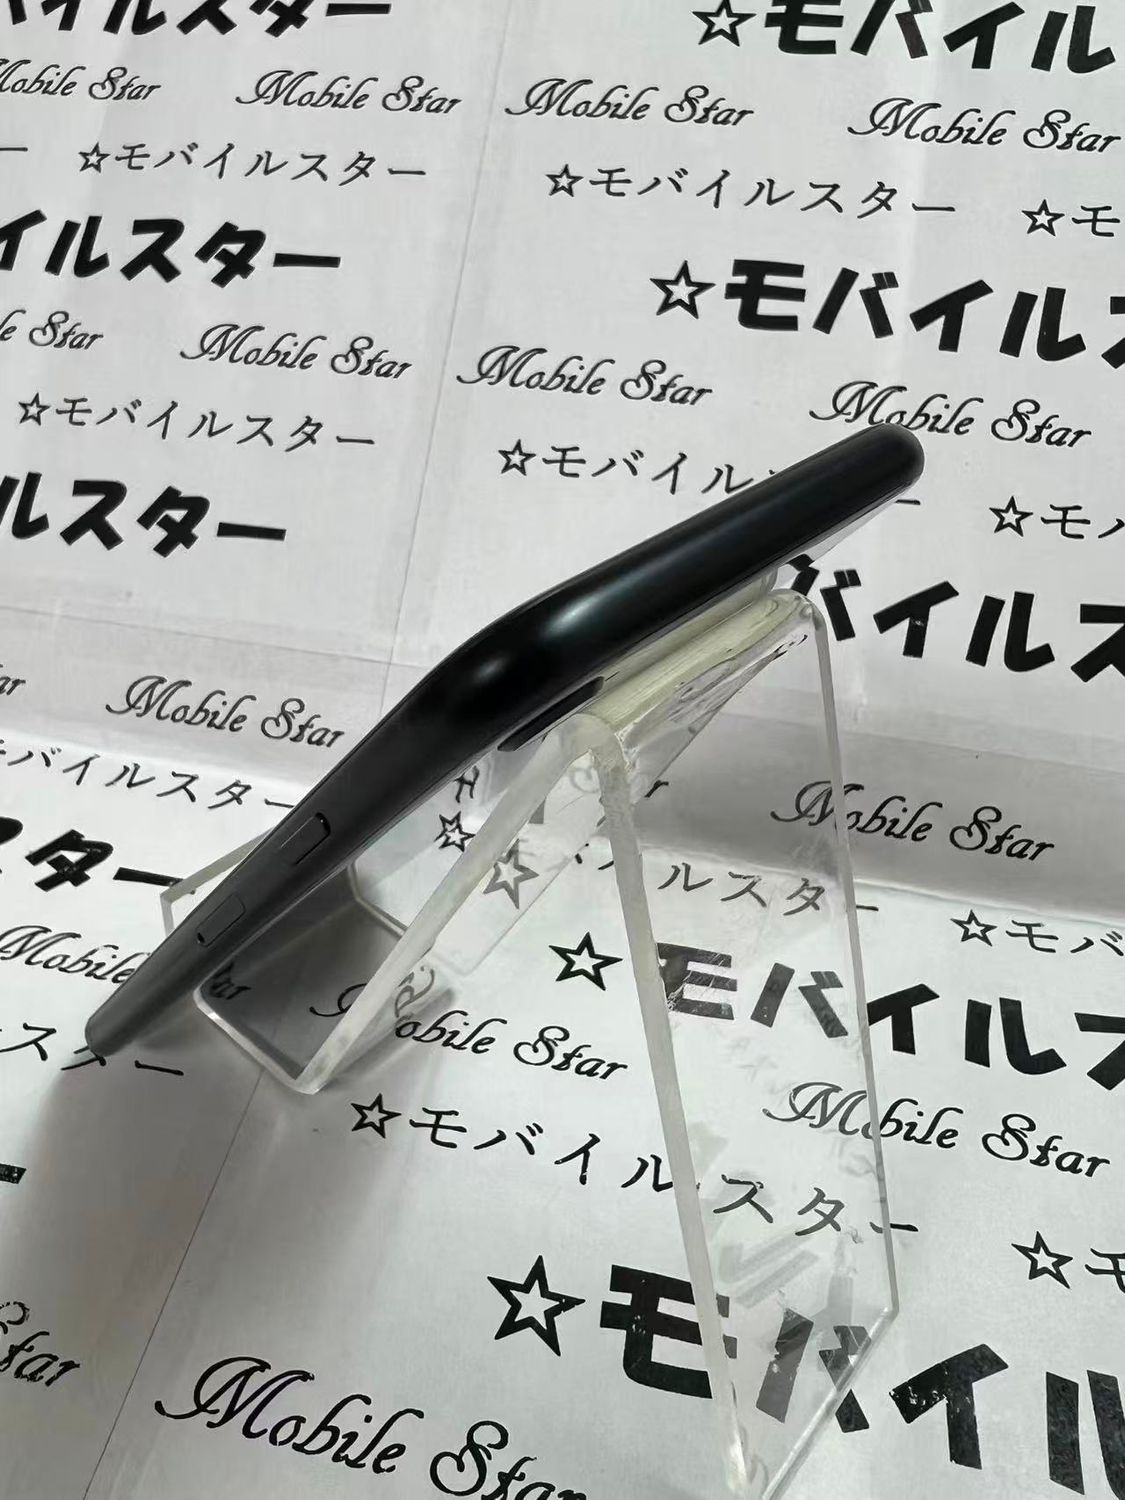 バイルスター ☆モバイル
Mobile Star Mobile Star Mobile Star Mobile Star
☆モバイルスター ☆モバイルスター ☆モ
イルスター ☆モバイルス
le Star Mobile Star Mobile Star Mobile Star
☆モバイルスター ☆モバイル ☆モバ
ルスター バイルス
ar Mobile Star Mobile Star
モバイルスター イルスター ☆モバ
スター ☆モバイルス
Mobile Star Mobile Star Mobile Star
スター ☆モバイルスター ☆モ
☆モバイル
Star Mobile Star